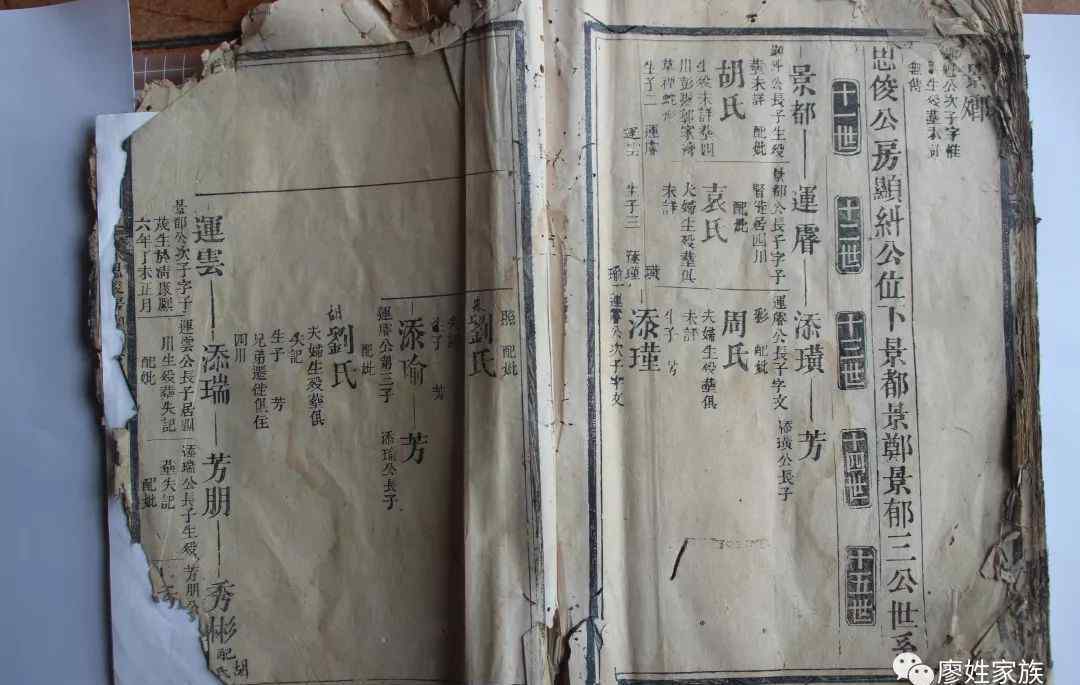 景㜅
公次子字惟
生殁葬未詳
無傳
思俊公房顯糾公位下景都景鄭景郁三公世系
十一世
十二世
十三世
十四世
十五世
景都
糾公長子生殁
葬未詳
配妣
胡氏
生殁未詳葬四
川彭
生子二
運膺
運雲
運膺
景都公長子字子
賢徙居四川
配妣
袁氏
夫婦生殁葬俱
未詳
生子三
添璜
添瑾
添瑜
添璜
運膺公長子字文
彩
配妣
周氏
夫婦生殁葬俱
未詳
生子
芳
芳
添璜公長子
添瑾
運膺公次子字文
照
配妣
劉氏
未詳
生子
芳
添瑜
運膺公第三子
配妣
胡劉氏
夫婦生殁葬俱
失記
生子
芳
兄弟遷徙俱住
四川
芳
添瑜公長子
運雲
景都公次子字子
茂生於清康熙
六年丁未正月
添瑞
運雲公長子居四
川生殁葬失記
配妣
芳朋
添瑞公長子生殁
葬失記
配妣
秀彬
芳朋公
配胡氏
廖姓家族